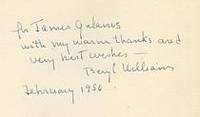 for James Galanos
with my warm thanks and
very best wishes —
Beryl Williams
February 1956.